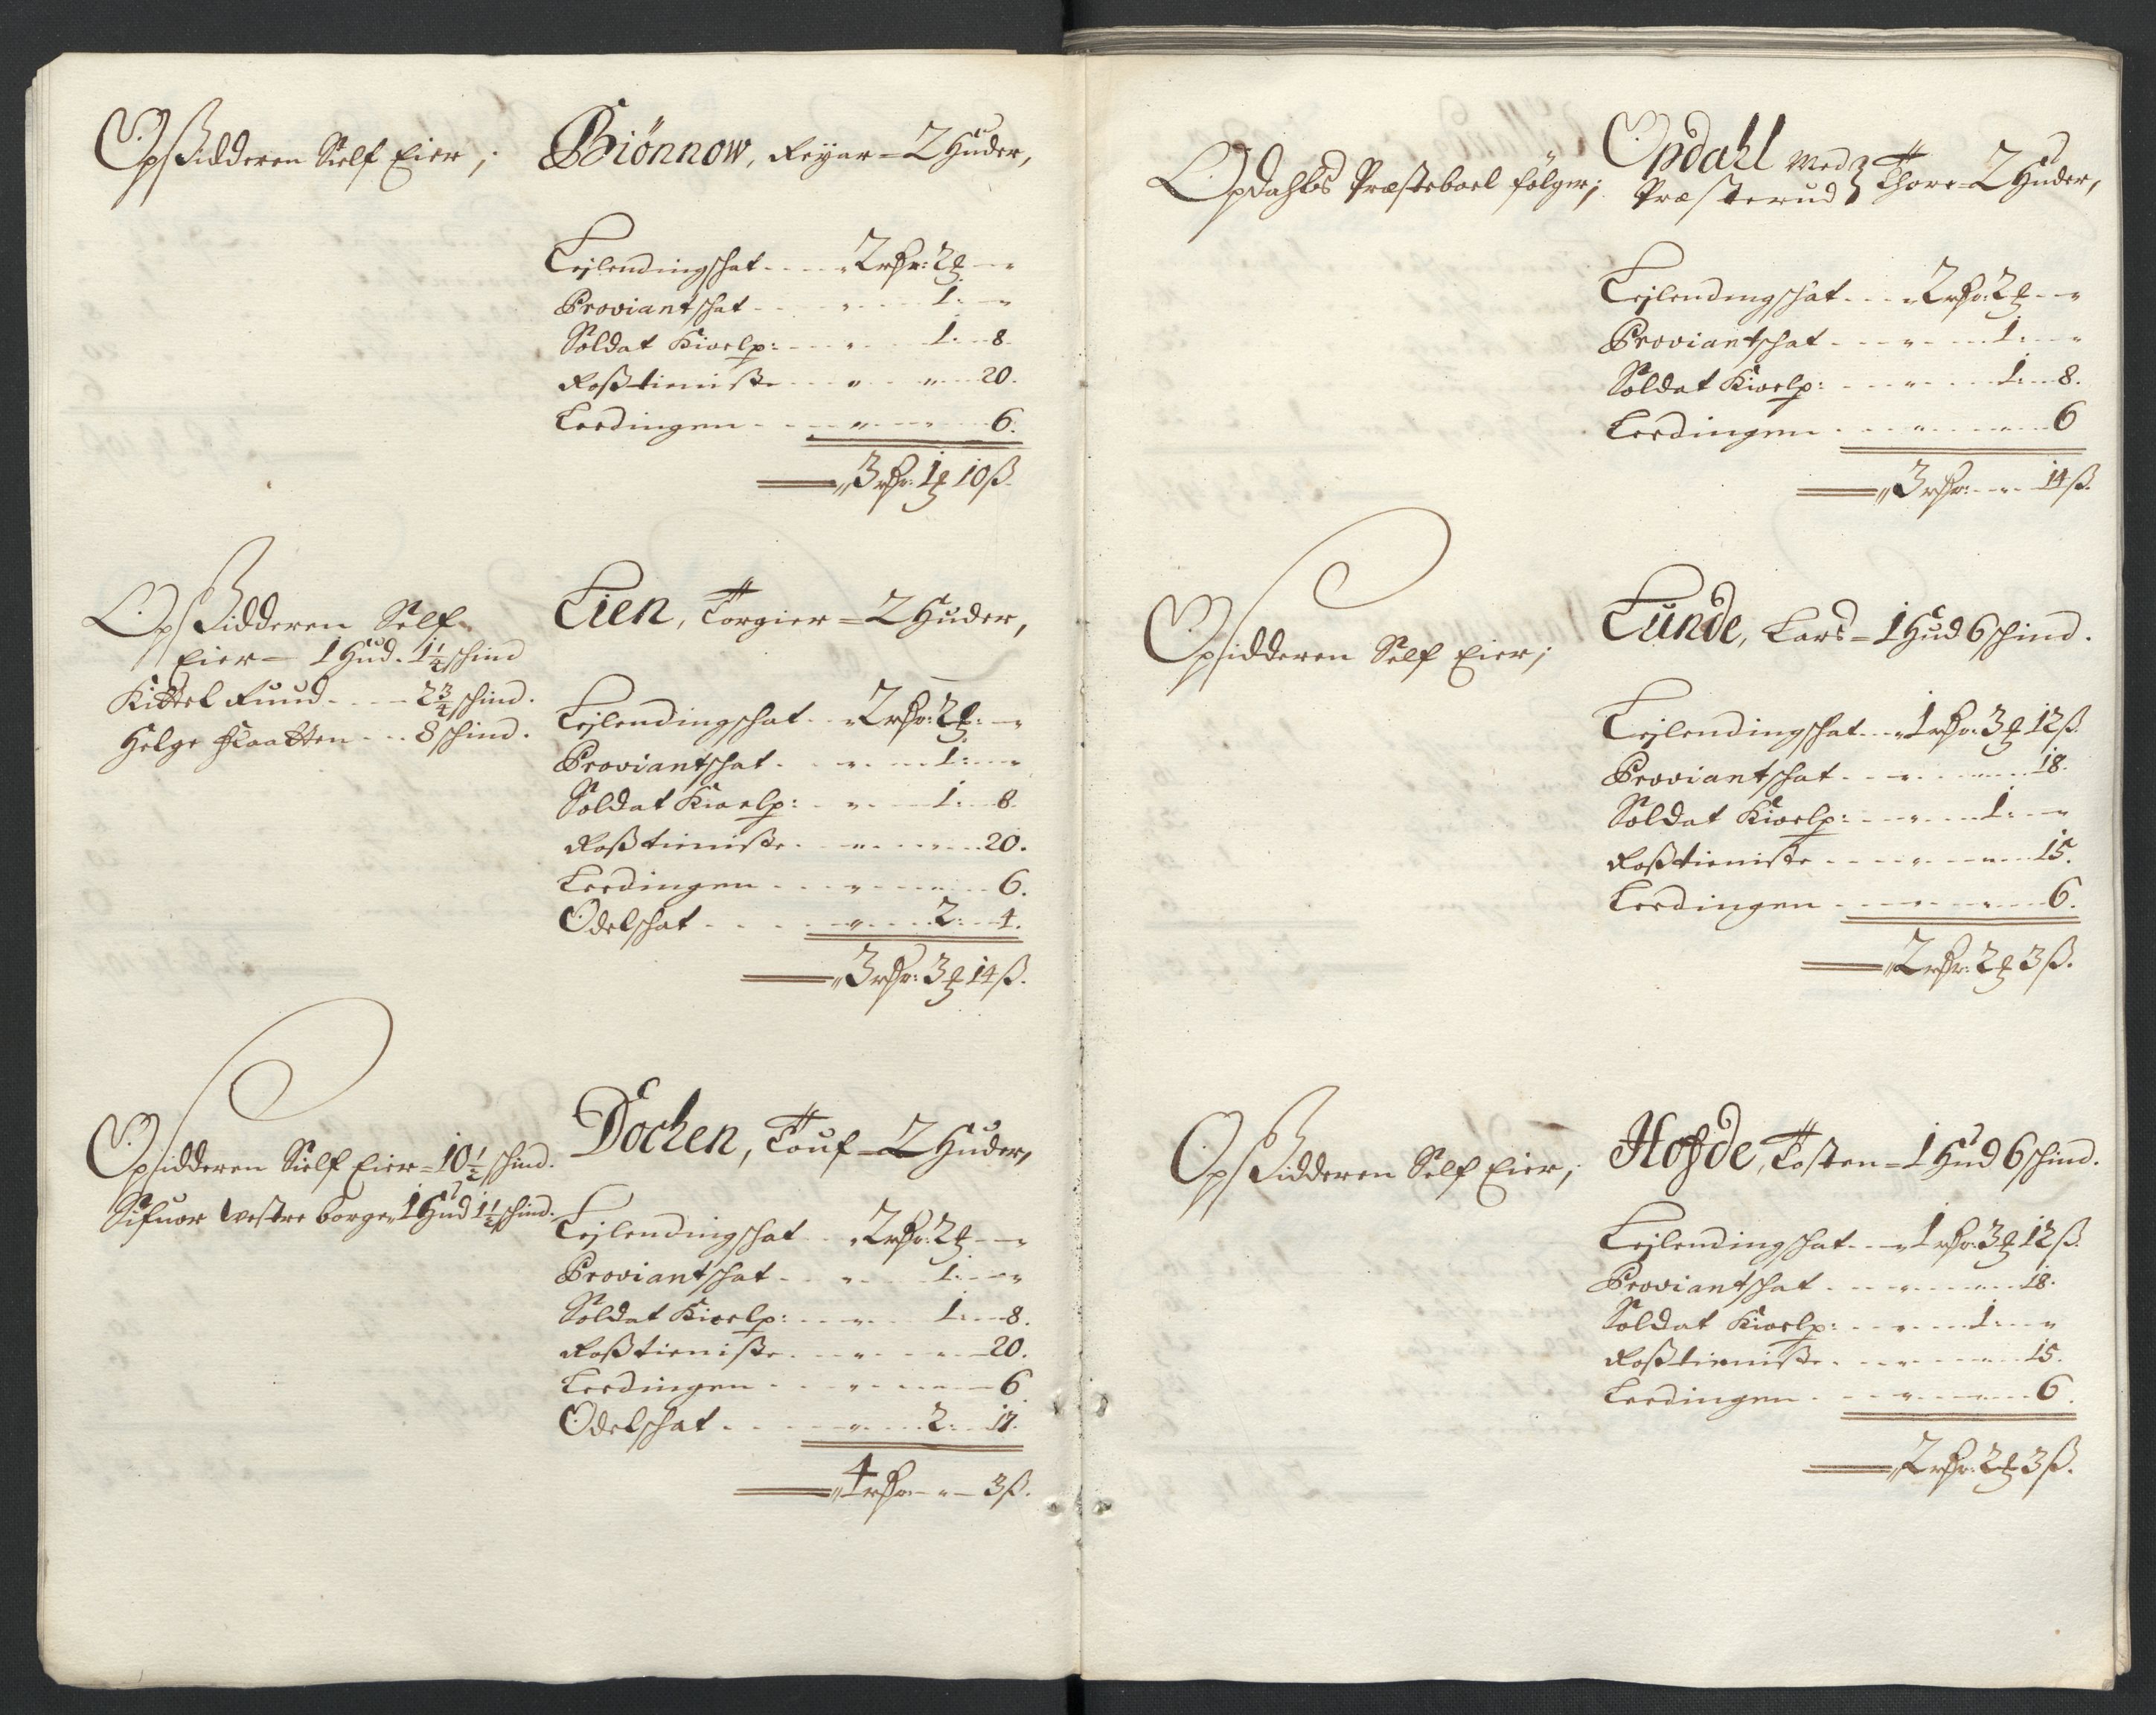 Opsidderen Sielf Eier;
Biönnow, Reyar = 2 Huder,
Lejlendingschat - - - - „ 2 rdr: 2 ꝑ - - „
Proviantschat - - - „ - - - 1: - - „
Soldat Kioelp: - - - „ - - - 1: - 8.
Roßtieniste - - - „ - - „ - - 20.
Leedingen - - - „ - - „ - - 6.
„ 3 rdr: 1 ꝑ 10 ß.
Opsidderen Self
Eier — 1 Hud. 1¼ schind
Kittel Ruud - - - - 2¾ schind.
Helge Flaatten - - - 8 schind.
Lien, Torgier = 2 Huder,
Lejlendingschat - - „ 2 rdr: 2 ꝑ: - „
Proviantschat - - „ - - - 1: - - „
Soldat Kioelp: - - „ - - - 1: - 8.
Roßtieniste - - „ - - „ - - 20.
Leedingen - - - „ - - „ - - 6.
Odelschat - - - - „ - - - 2: - 4.
„ 3 rdr: 3 ꝑ 14 ß.
Opsidderen Sielf Eier = 10½ schind.
Sifuor Westre borge „ 1 Hud 1½ schind.
Dochen, Touf = 2 Huder,
Lejlendingschat - - „ 2 rdr: 2 ꝑ - - „
Proviantschat - - - „ - - - 1: - - „
Soldat Kioelp: - - - „ - - 1: - 8.
Roßtieniste - - - „ - - „ - 20.
Leedingen - - - „ - - „ - - 6
Odelschat - - - - „ - - - 2: - 17.
„ 4 rdr - „ - 3 ß.
Opdahls Præsteboel følger;
Opdahl Med
Præsterud } Thore = 2 Huder,
Lejlendingschat - - - „ 2 rdr: 2 ꝑ - - „
Proviantschat - - - „ - - - 1: - - „
Soldat Kioelp: - - - „ - - - 1: - 8.
Leedingen - - - „ - - „ - - 6
„ 3 rdr: - „ - 14 ß.
Opsidderen Self Eier;
Lunde, Lars = 1 Hud 6 schind.
Lejlendingschat - - „ 1 rdr: 3 ꝑ 12 ß.
Proviantschat - - - „ - - „ - - 18.
Soldat Kioelp: - - - „ - - - 1: - - „
Roßtieniste - - - „ - - „ - - 15.
Leedingen - - - „ - - „ - - 6.
„ 2 rdr: 2 ꝑ 3 ß.
Opsidderen Self Eier;
Hofde, Tosten = 1 Hud 6 schind.
Lejlendingschat - - „ 1 rdr: 3 ꝑ 12 ß.
Proviantschat - - - „ - - „ - - 18.
Soldat Kioelp: - - - „ - - - 1: - - „
Roßtieniste - - - „ - - „ - - 15.
Leedingen - - - „ - - „ - - 6.
„ 2 rdr: 2 ꝑ 3 ß.